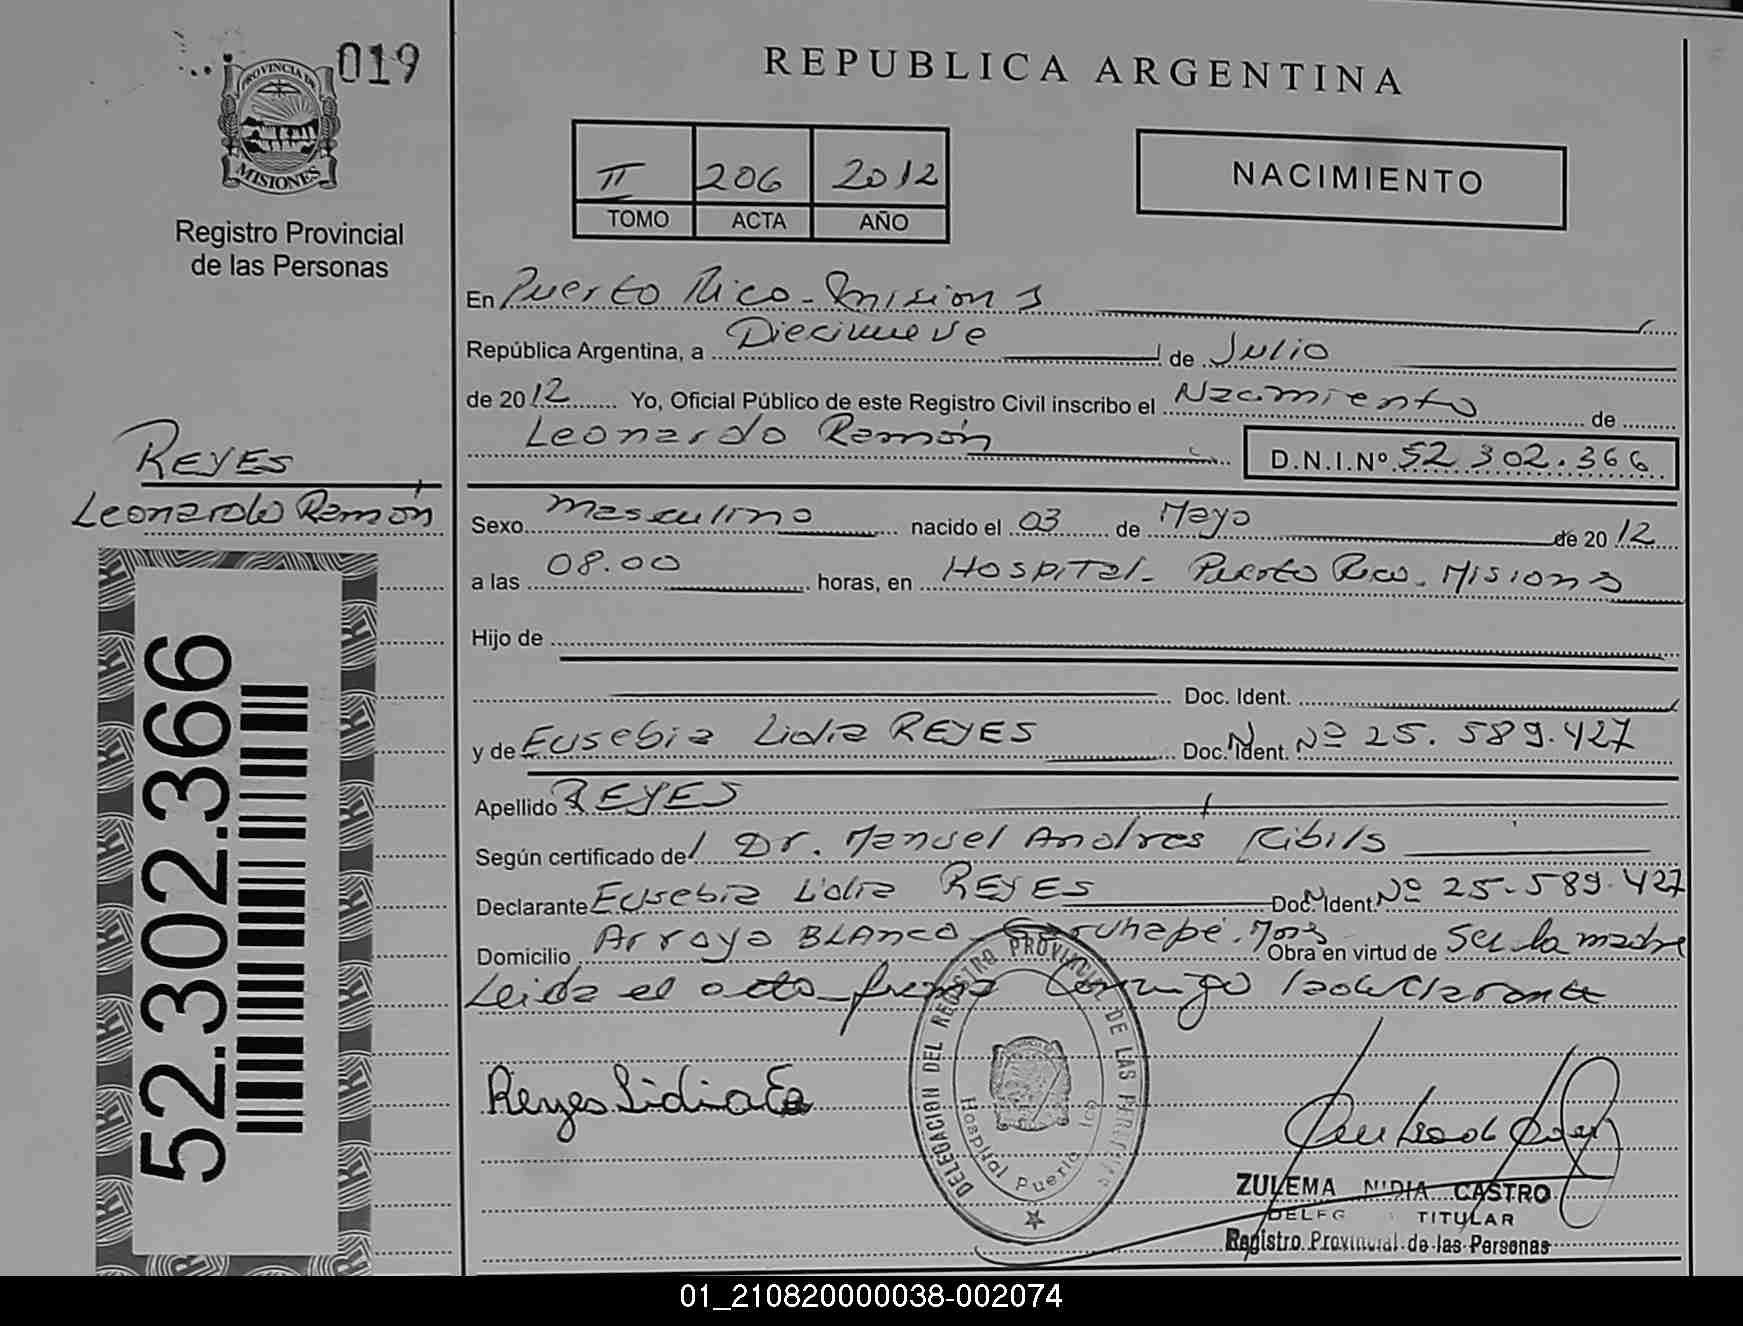 019
PROVINCIA DE
MISIONES
Registro Provincial
de las Personas
REYES
Leonardo Ramón
52.302.366
REPUBLICA ARGENTINA
II 206 2012
TOMO ACTA AÑO
NACIMIENTO
En Puerto Rico - Misiones
República Argentina, a Diecinueve de Julio
de 2012 Yo, Oficial Público de este Registro Civil inscribo el Nacimiento de
Leonardo Ramón D.N.I.Nº 52.302.366
Sexo Masculino nacido el 03 de Mayo de 2012
a las 08.00 horas, en Hospital - Puerto Rico - Misiones
Hijo de
Doc. Ident.
y de Eusebia Lidia REYES Doc. N. Ident. Nº 25.589.427
Apellido REYES
Según certificado de Dr. Manuel Andres Ribils
Declarante Eusebia Lidia REYES Doc. N. Ident. Nº 25.589.427
Domicilio Arroyo BLANCO - Garuhapé. Mnes Obra en virtud de Ser la madre
Leida el acta firma conmigo la declarante
Reyes Lidia E
DELEGACION DEL REGISTRO PROVINCIAL DE LAS PERSONAS
Hospital Puerto Rico
ZULEMA NIDIA CASTRO
TITULAR
Registro Provincial de las Personas
01_210820000038-002074